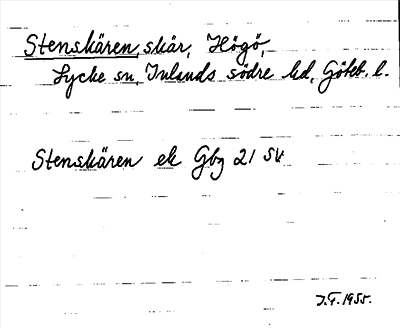 Stenskären, skär, Högö,
Lycke sn, Inlands södre hd, Göteb. l.
Stenskären ek Gbg 21 SV
J.G. 1955.